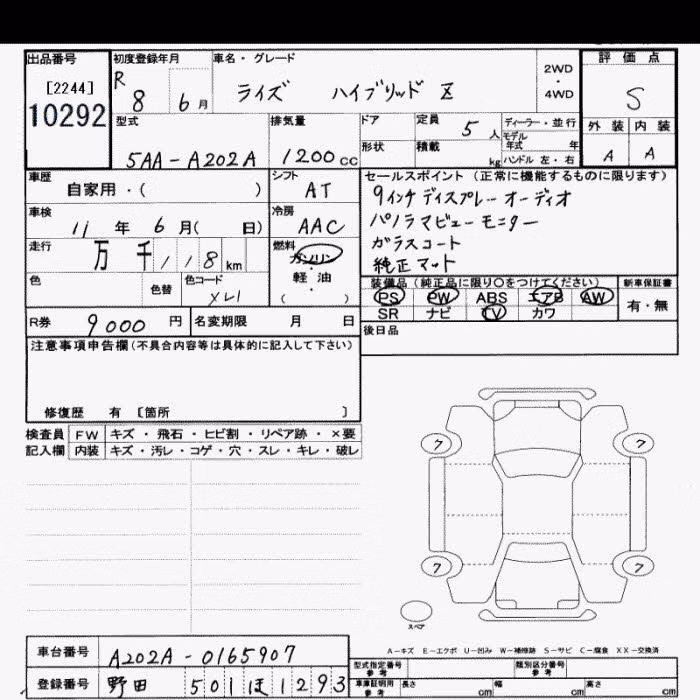 出品番号
[2244]
10292
初度登録年月
R 8 6月
車名・グレード
ライズ ハイブリッド Z
2WD
・
4WD
評価点
S
外装 内装
A A
型式
5AA-A202A
排気量
1200cc
ドア
形状
定員 5人
積載 kg
ディーラー・並行
モデル年式 年
ハンドル 左・右
車歴
自家用・( )
シフト
AT
車検
11年 6月( 日)
冷房
AAC
走行
万 千 118km
燃料
ガソリン
・
軽油
( )
色
色替
色コード
XL1
R券 9000円
名変期限 月 日
セールスポイント(正常に機能するものに限ります)
9インチディスプレーオーディオ
パノラマビューモニター
ガラスコート
純正マット
装備品(純正品に限り○をつけてください)
PS PW ABS エアB AW
SR ナビ TV カワ
新車保証書
有・無
後日品
注意事項申告欄(不具合内容等は具体的に記入して下さい)
修復歴 有 [箇所 ]
検査員 FW キズ・飛石・ヒビ割・リペア跡・×要
記入欄 内装 キズ・汚レ・コゲ・穴・スレ・キレ・破レ
7 7
7 7
スペア
A-キズ E-エクボ U-凹み W-補修跡 S-サビ C-腐食 XX-交換済
車台番号 A202A-0165907
登録番号 野田 501ほ1293
型式指定番号
参考
類別区分番号
参考
車庫証明用
参考
長さ cm 幅 cm 高さ cm